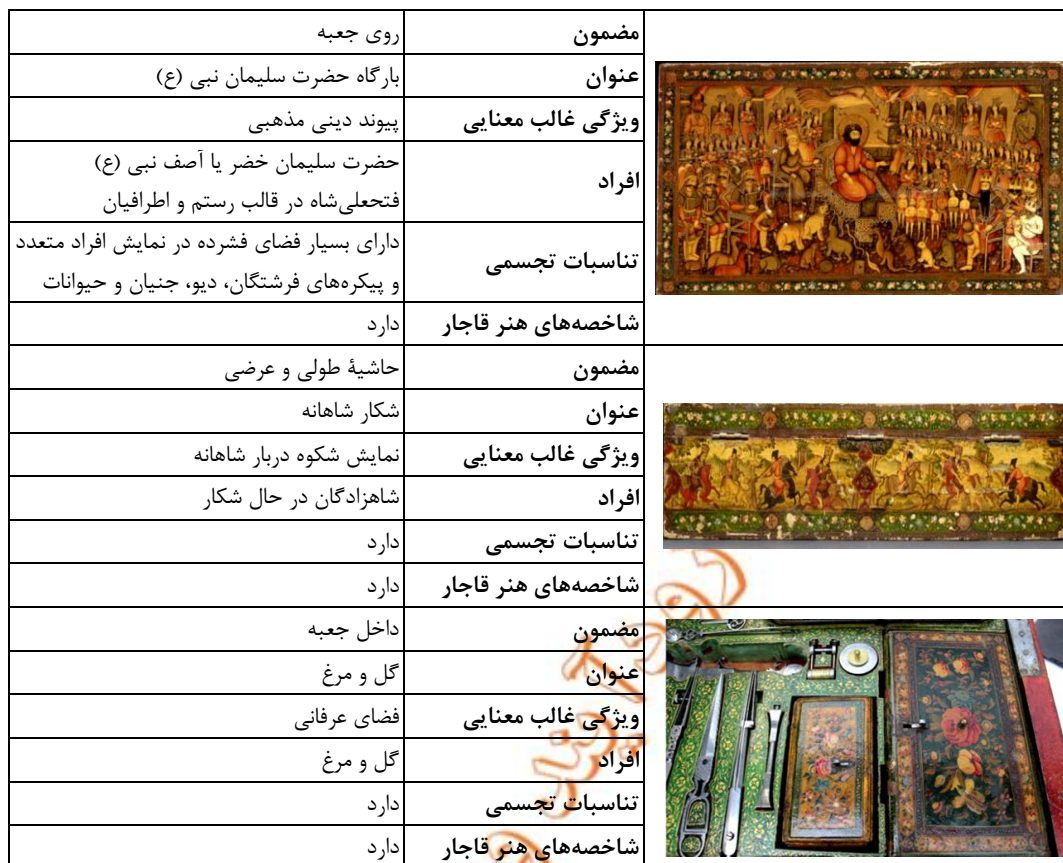 مضمون روی جعبه
عنوان بارگاه حضرت سلیمان نبی (ع)
ویژگی غالب معنایی پیوند دینی مذهبی
افراد حضرت سلیمان خضر یا آصف نبی (ع)
فتحعلی‌شاه در قالب رستم و اطرافیان
تناسبات تجسمی دارای بسیار فضای فشرده در نمایش افراد متعدد
و پیکره‌های فرشتگان، دیو، جنیان و حیوانات
شاخصه‌های هنر قاجار دارد
مضمون حاشیهٔ طولی و عرضی
عنوان شکار شاهانه
ویژگی غالب معنایی نمایش شکوه دربار شاهانه
افراد شاهزادگان در حال شکار
تناسبات تجسمی دارد
شاخصه‌های هنر قاجار دارد
مضمون داخل جعبه
عنوان گل و مرغ
ویژگی غالب معنایی فضای عرفانی
افراد گل و مرغ
تناسبات تجسمی دارد
شاخصه‌های هنر قاجار دارد